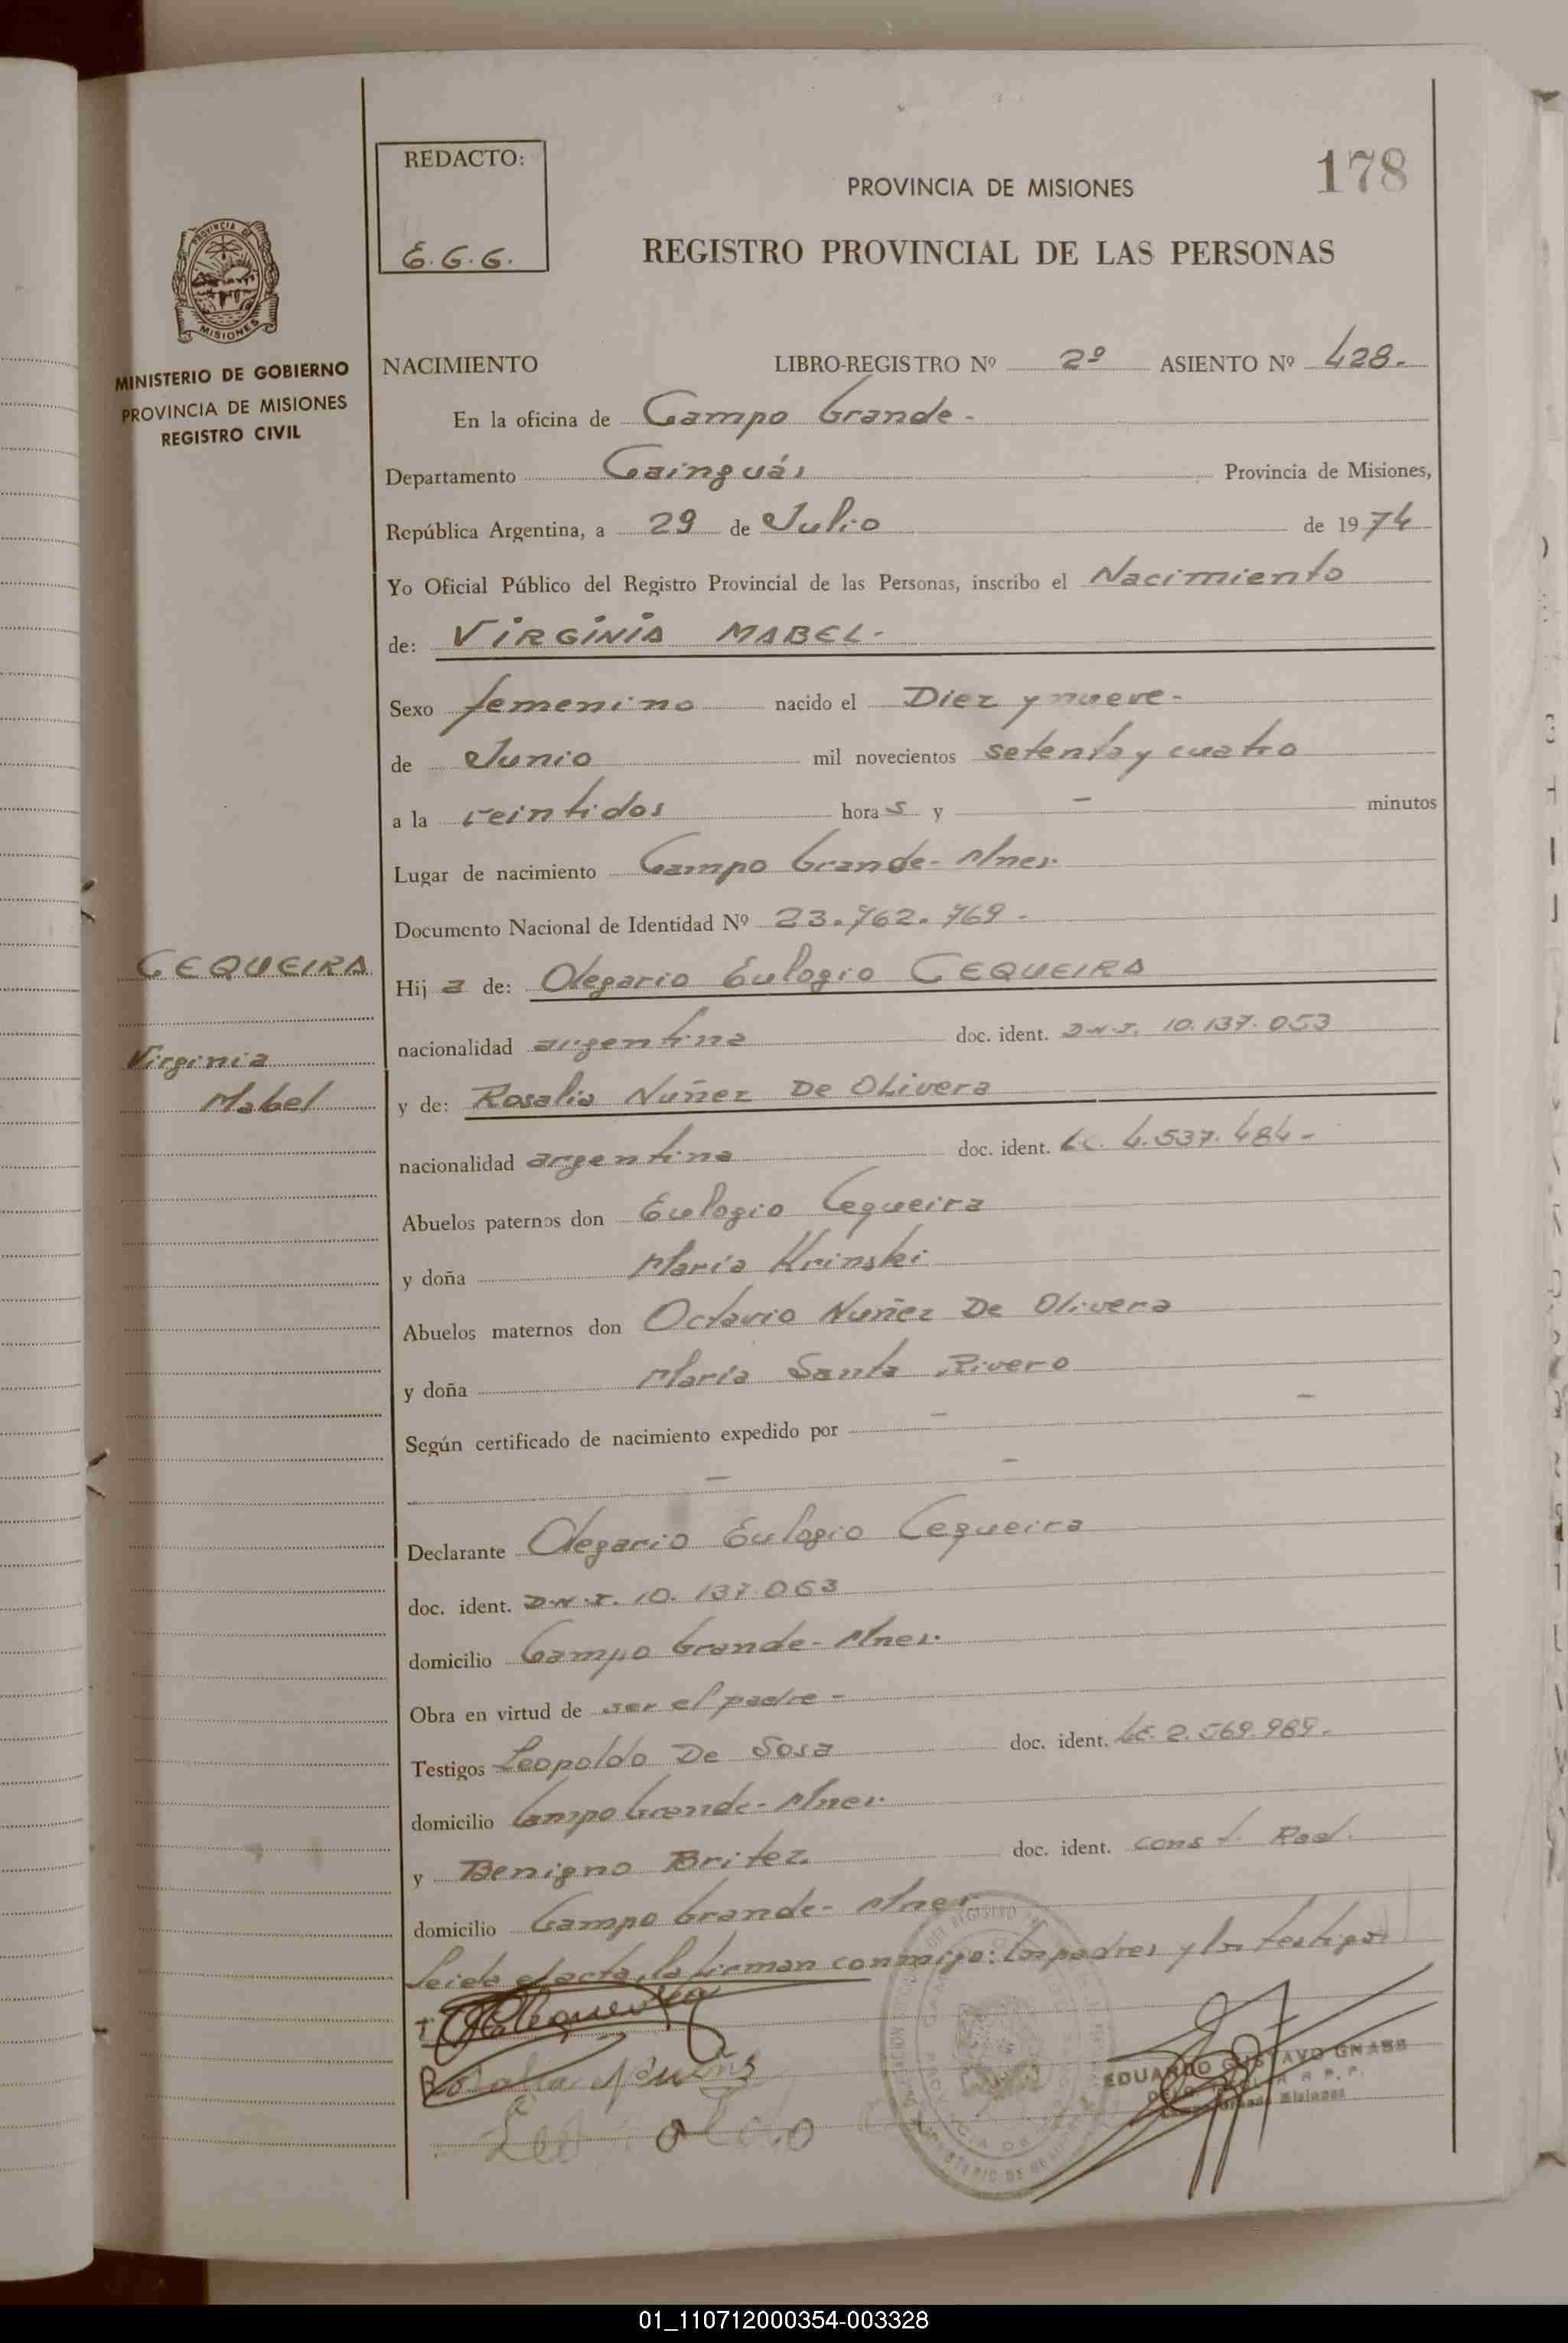 178
REDACTO:
E.G.G.
PROVINCIA DE MISIONES
REGISTRO PROVINCIAL DE LAS PERSONAS
PROVINCIA DE
MISIONES
MINISTERIO DE GOBIERNO
PROVINCIA DE MISIONES
REGISTRO CIVIL
NACIMIENTO LIBRO-REGISTRO Nº 2º ASIENTO Nº 428.
En la oficina de Campo Grande-
Departamento Cainguás Provincia de Misiones,
República Argentina, a 29 de Julio de 1974
Yo Oficial Público del Registro Provincial de las Personas, inscribo el Nacimiento
de: VIRGINIA MABEL-
Sexo femenino nacido el Diez y nueve-
de Junio mil novecientos setenta y cuatro
a la veintidos horas y - minutos
Lugar de nacimiento Campo Grande- Mnes.
Documento Nacional de Identidad Nº 23.762.769.
CEQUEIRA
Hija de: Olegario Eulogio CEQUEIRA
nacionalidad argentina doc. ident. D.N.I. 10.137.053
Virginia
Mabel
y de: Rosalia Nuñez De Olivera
nacionalidad argentina doc. ident. L.C. 4.537.484-
Abuelos paternos don Eulogio Cequeira
y doña María Krinski
Abuelos maternos don Octavio Nuñez De Olivera
y doña María Santa Rivero
Según certificado de nacimiento expedido por - -
- -
Declarante Olegario Eulogio Cequeira
doc. ident. D.N.I. 10.137.063
domicilio Campo Grande- Mnes.
Obra en virtud de ser el padre-
Testigos Leopoldo De Sosa doc. ident. 2.569.989.
domicilio Campo Grande- Mnes.
y Benigno Britez doc. ident. const. Rad.
domicilio Campo Grande- Mnes.
Leida el acta, la firman conmigo: los padres y los testigos
Rosalia Nuñes
EDUARDO GUSTAVO GNASS
Campo Grande Misiones
01_110712000354-003328